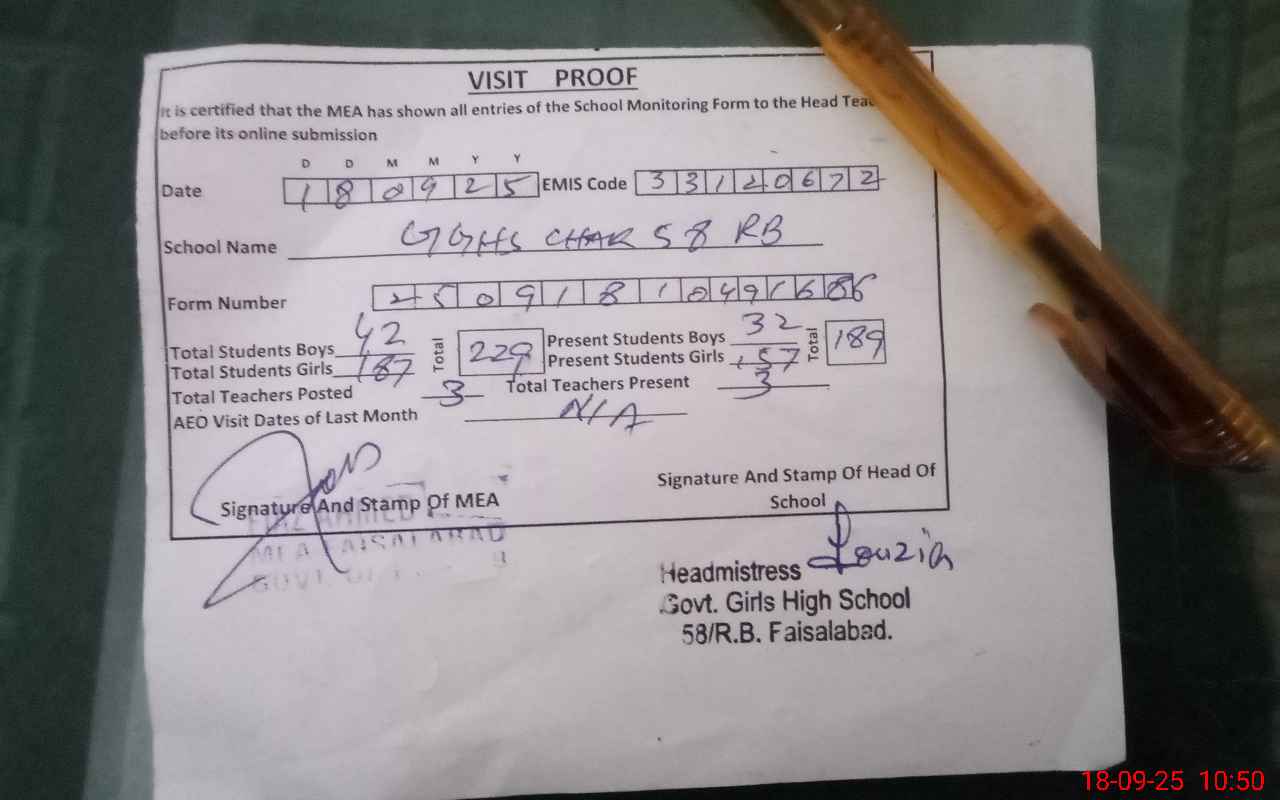 VISIT PROOF
It is certified that the MEA has shown all entries of the School Monitoring Form to the Head
before its online submission
D D M M Y Y
Date 1 8 0 9 2 5 EMIS Code 3 3 1 2 0 6 7 2
School Name GGHS CHAK 58 RB
Form Number 2 5 0 9 1 8 1 0 4 9 1 6
Total Students Boys 42 Total 229 Present Students Boys 32 Total 189
Total Students Girls 187 Present Students Girls 157
Total Teachers Posted 3 Total Teachers Present 3
AEO Visit Dates of Last Month N/A
Signature And Stamp Of MEA
Signature And Stamp Of Head Of
School
AHMED
MEA FAISALABAD
GOVT. OF
Fouzia
Headmistress
Govt. Girls High School
58/R.B. Faisalabad.
18-09-25 10:50